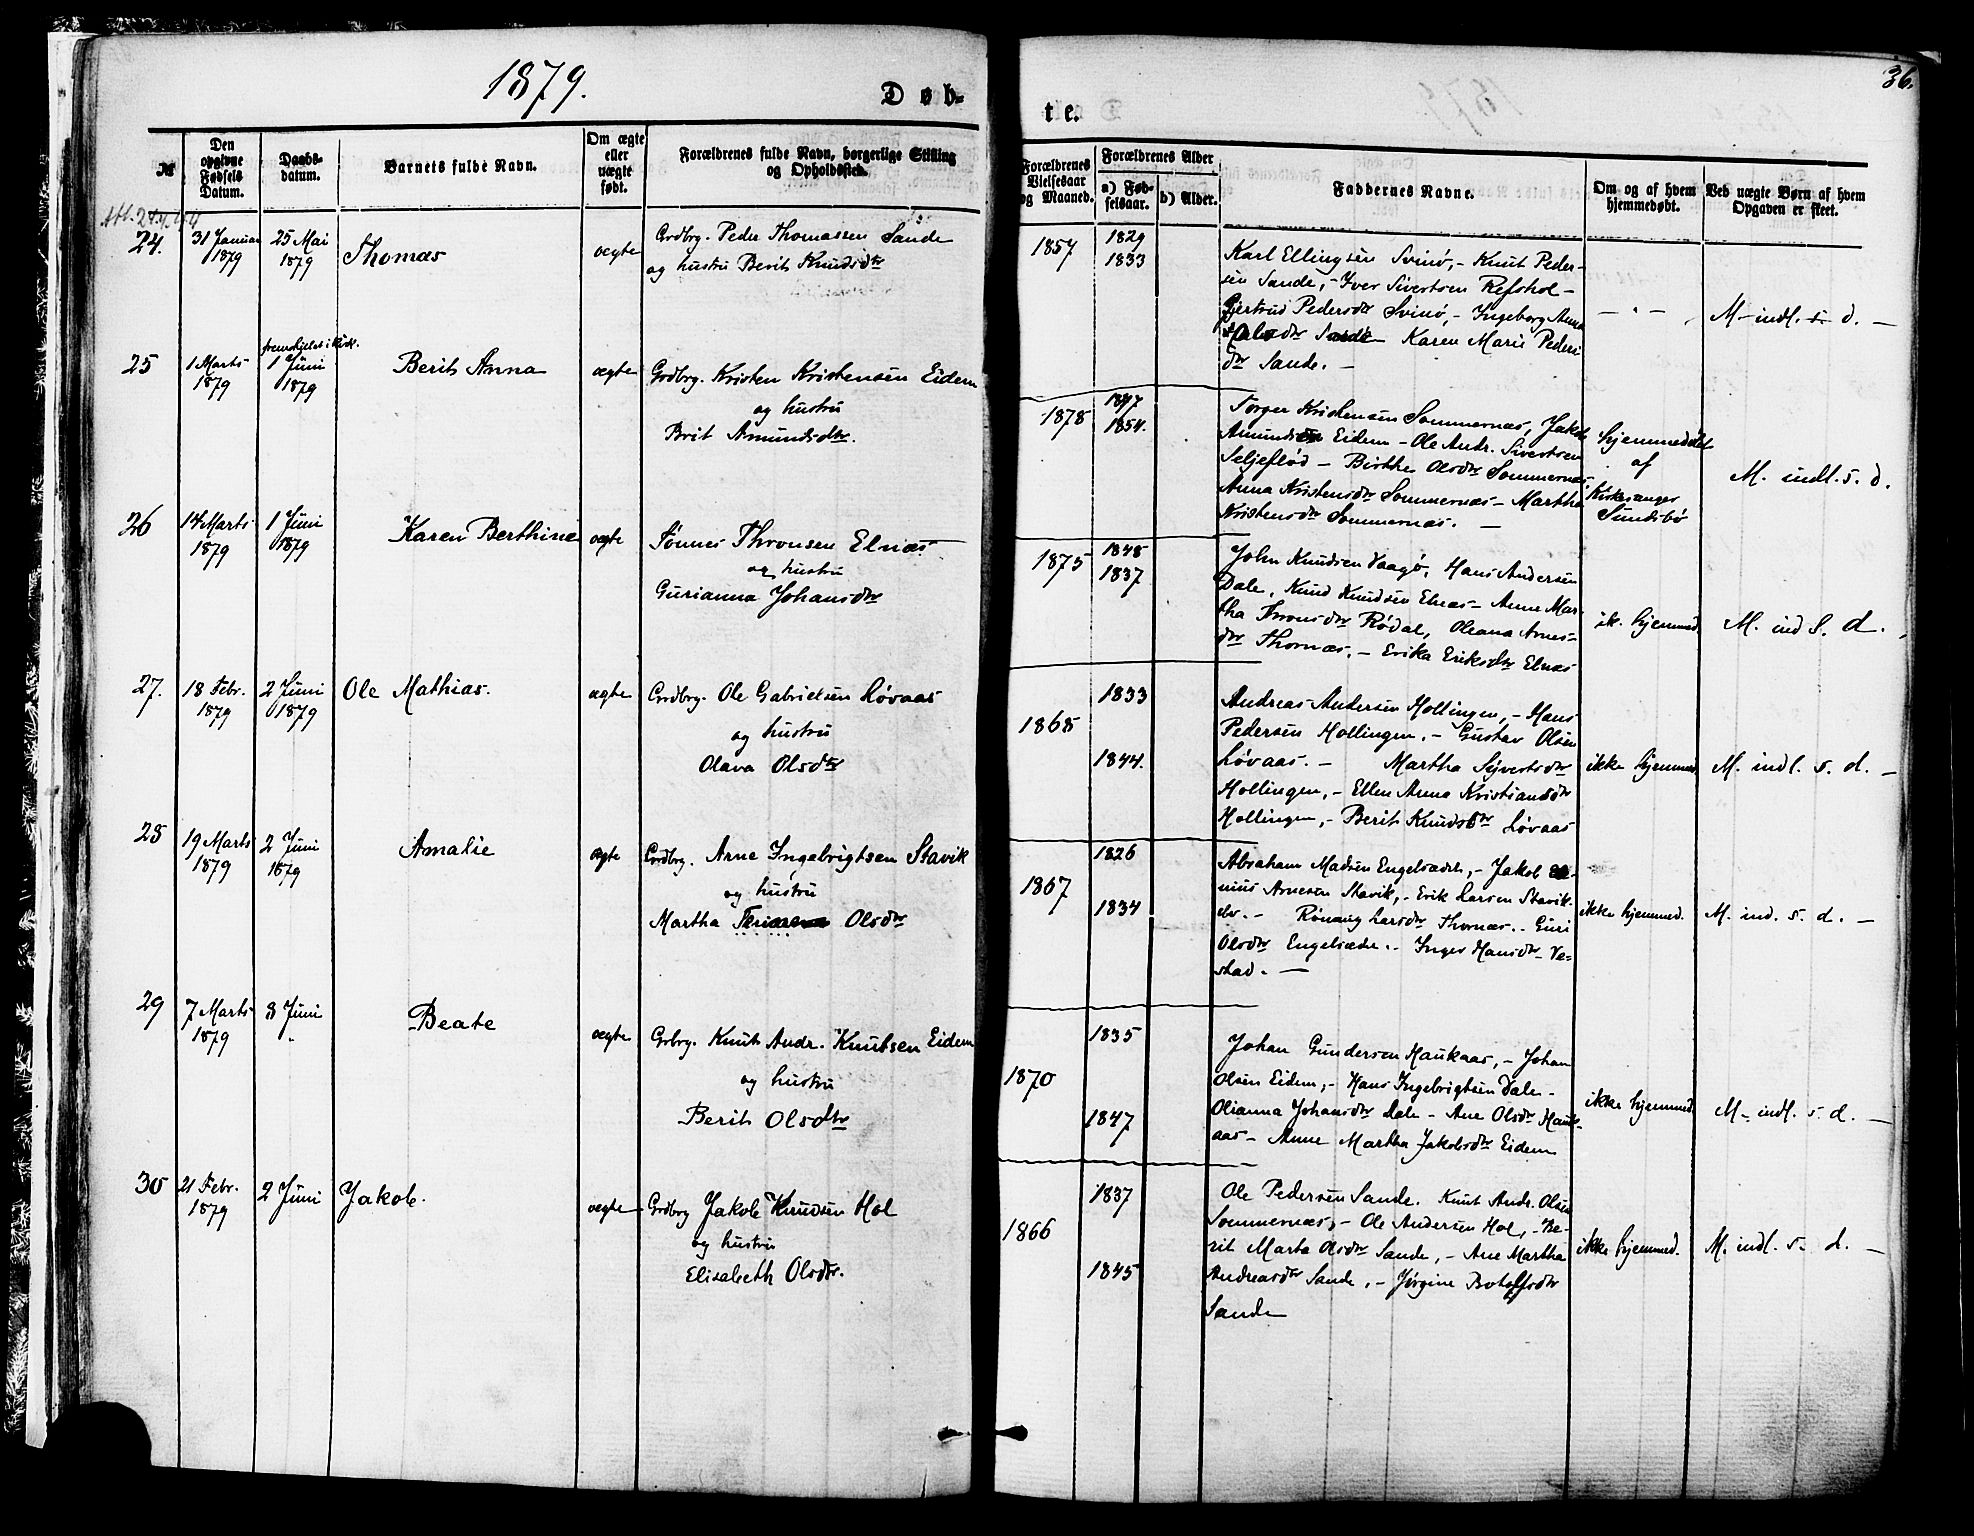 1879.
Døb-
№
Den opgivne Fødsels Datum.
Daabs-datum.
Barnets fulde Navn.
Om ægte eller uægte født.
Forældrenes fulde Navn, borgerlige Stilling og Opholdssted.
24.
31 Januar 1879
25 Mai 1879
Thomas
ægte
Grdbrg. Peder Thomassen Sande
og hustru Berit Knudsdtr
25
1 Marts 1879
1 Juni 1879
Berit Anna
ægte
Grdbrg. Kristen Kristensen Eidem
og hustru
Brit Amundsdtr.
26
14 Marts 1879
1 Juni 1879
Karen Berthine
ægte
Tønnes Thronsen Elnæs
og hustru
Gurianna Johansdtr
27.
18 Febr. 1879
2 Juni 1879
Ole Mathias.
ægte
Grdbrg. Ole Gabrielsen Løvaas
og hustru
Olava Olsdtr
28
19 Marts 1879
2 Juni 1879
Amalie
ægte
Grdbrg. Arne Ingebrigtsen Stavik
og hustru
Martha Olsdtr
29
7 Marts 1879
8 Juni "
Beate
ægte
Grbrg. Knut Andr. Knutsen Eidem
og hustru
Berit Olsdtr
30
21 Febr. 1879
2 Juni
Jakob.
ægte
Grdbrg Jakob Knudsen Hol
og hustru
Elisabeth Olsdtr.
te.
36.
Forældrenes Vielsesaar og Maaned.
Forældrenes Alder
a) Fødselsaar.
b) Alder.
Faddernes Navne.
Om og af hvem hjemmedøbt.
Ved uægte Børn af hvem Opgaven er skeet.
1857
1829
1833
Karl Ellingsen Svinø, - Knut Peder-
sen Sande, - Iver Sivertsen Refshol -
Gjertrud Pedersdtr Svinø, - Ingeborg Anna
Olsdtr Sande - Karen Marie Peders
dtr Sande. -
— " —
M - indl. s. d. —
1878
1847
1854.
Torger Kristensen Sommernæs, Jakob
Amundsen Eidem - Ole Andr. Sivertsen
Seljeflød - Birthe Olsdtr Sommernæs
Anna Kristensdtr Sommernæs - Martha
Kristensdtr Sommernæs. —
hjemmedøbt
af
Kirkesanger
Sundsbø
M. indl. s. d.
1875
1848
1837
John Knudsen Vaagø, Hans Andersen
Dale, Knud Knudsen Elnæs - Anne Mar-
tha Thronsdtr Rødal, Oleana Arnes-
dtr Thornæs. - Erika Eriksdtr Elnæs
ik. hjemmed.
M. ind s. d.
1868
1833
1844.
Andreas Andersen Hollingen, - Hans
Pedersen Hollingen. - Gustav Olsen
Løvaas. - Martha Syvertsdtr
Hollingen, - Ellen Anna Kristiansdtr
Hollingen, - Berit Knudsdtr Løvaas
ikke hjemmed.
M. indl. s. d. —
1867
1826
1834
Abraham Madsen Engelsæth, - Jakob
nius Arnesen Stavik, - Erik Larsen Stavik.
elv. - Rønaug Larsdtr Thornæs. - Guri
Olsdtr Engelsæth. - Inger Hansdtr Ve-
stad. —
ikke hjemmed.
M. ind. s. d. —
1870
1835
1847
Johan Gundersen Haukaas, - Johan
Olsen Eidem, - Hans Ingebrigtsen Dale -
Olianna Johansdtr Dale - Ane Olsdtr Hauk-
aas - Anne Martha Jakobsdtr Eidem
ikke hjemmed.
M - indl. s. d. —
1866
1837
1845
Ole Pedersen Sande. Knut Andr. Olsen
Sommernæs, - Ole Andersen Hol, - Be-
rit Marta Olsdtr Sande, - Ane Martha
Andreasdtr Sande, - Jørgine Botolfsdtr
Sande
ikke hjemmed.
M. indl. s. d. —